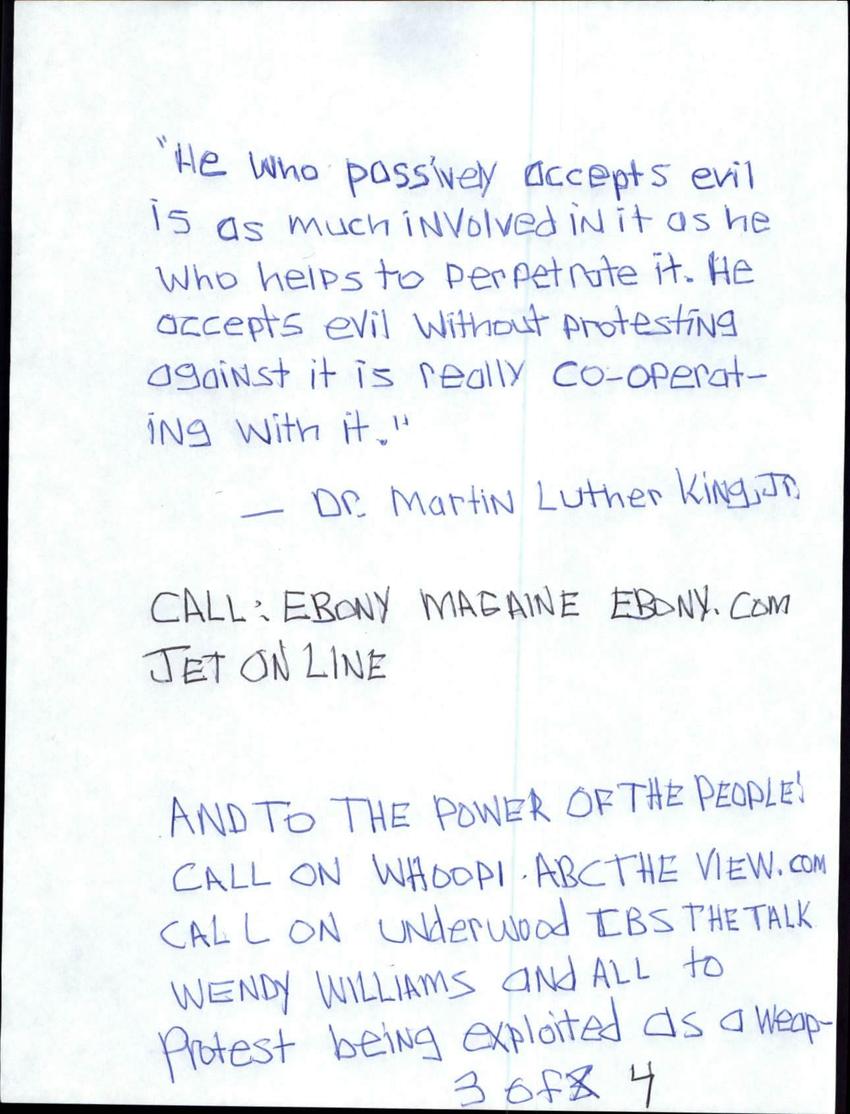 "He who passively accepts evil
is as much iNVolved iN it as he
who helps to perpetrate it. He
accepts evil without protestiNg
agaiNst it is really co-operat-
iNg with it."
— Dr. MartiN Luther KiNg, Jr.
CALL: EBONY MAGAINE EBONY.COM
JET ON LINE
AND TO THE POWER OF THE PEOPLE!
CALL ON WHOOPI. ABC THE VIEW.COM
CALL ON UNderwood CBS THE TALK
WENDY WILLIAMS aNd ALL to
Protest beiNg exploited as a weap-
3 of 4